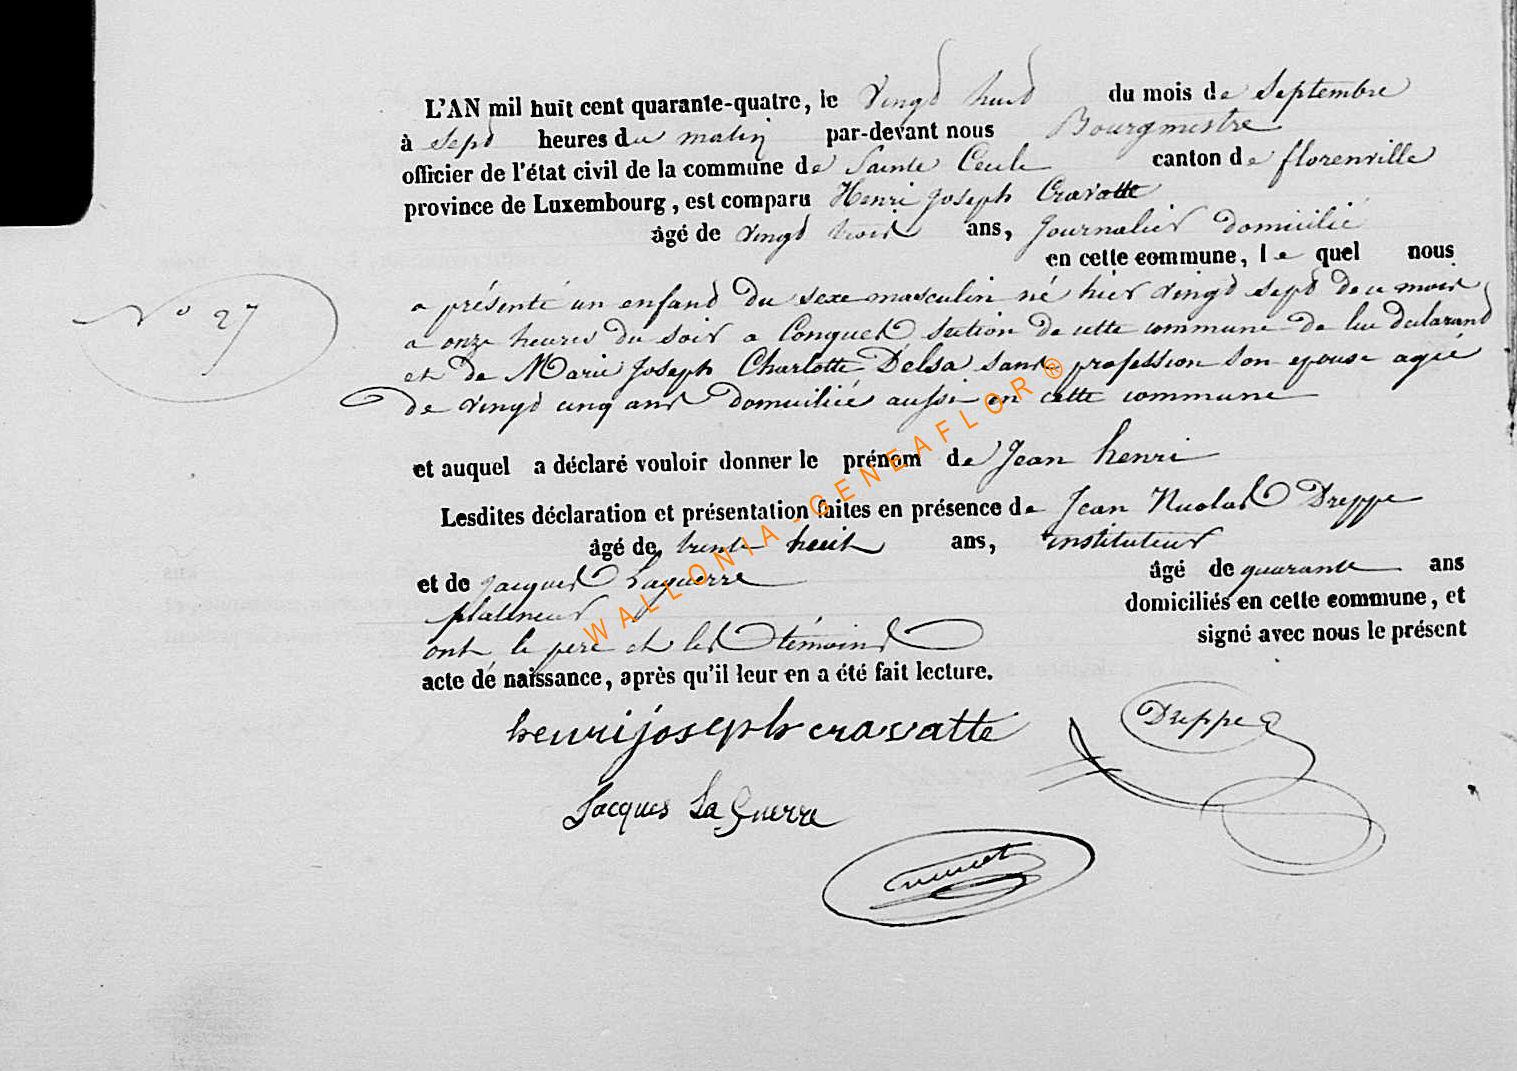 L'AN mil huit cent quarante-quatre, le Vingt huit du mois de Septembre
à sept heures du matin par-devant nous Bourgmestre
officier de l'état civil de la commune de Sainte Cecile canton de florenville
province de Luxembourg, est comparu Henri joseph Cravatte
âgé de vingt trois ans, journalier domicilié
en cette commune, le quel nous
N° 27
a présenté un enfant du sexe masculin né hier vingt sept de ce mois
a onze heures du soir a Conques section de cette commune de lui déclarant
et de Marie joseph Charlotte Delsa sans profession son epouse agée
de vingt cinq ans domiciliée aussi en cette commune
et auquel a déclaré vouloir donner le prénom de Jean henri
Lesdites déclaration et présentation faites en présence de Jean Nicolas Dreppe
âgé de trente huit ans, instituteur
et de jacques Laguerre âgé de quarante ans
platineur domiciliés en cette commune, et
ont le pere et les témoins signé avec nous le présent
acte de naissance, après qu'il leur en a été fait lecture.
henri joseph cravatte Dreppe
Jacques La Guerre
WALLONIA - GENEAFLOR ®